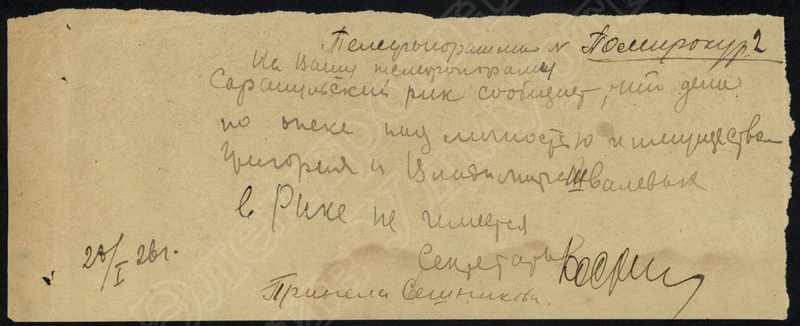 Телефонограмма № Помпрокур. 2
На Вашу телефонограму
Сарапульский рик сообщает, что дела
по опеке над личностью и имуществом
Григория и Владимира Швалевых
в Рике не имеется
Секретарь
28/I 26 г.
Приняла